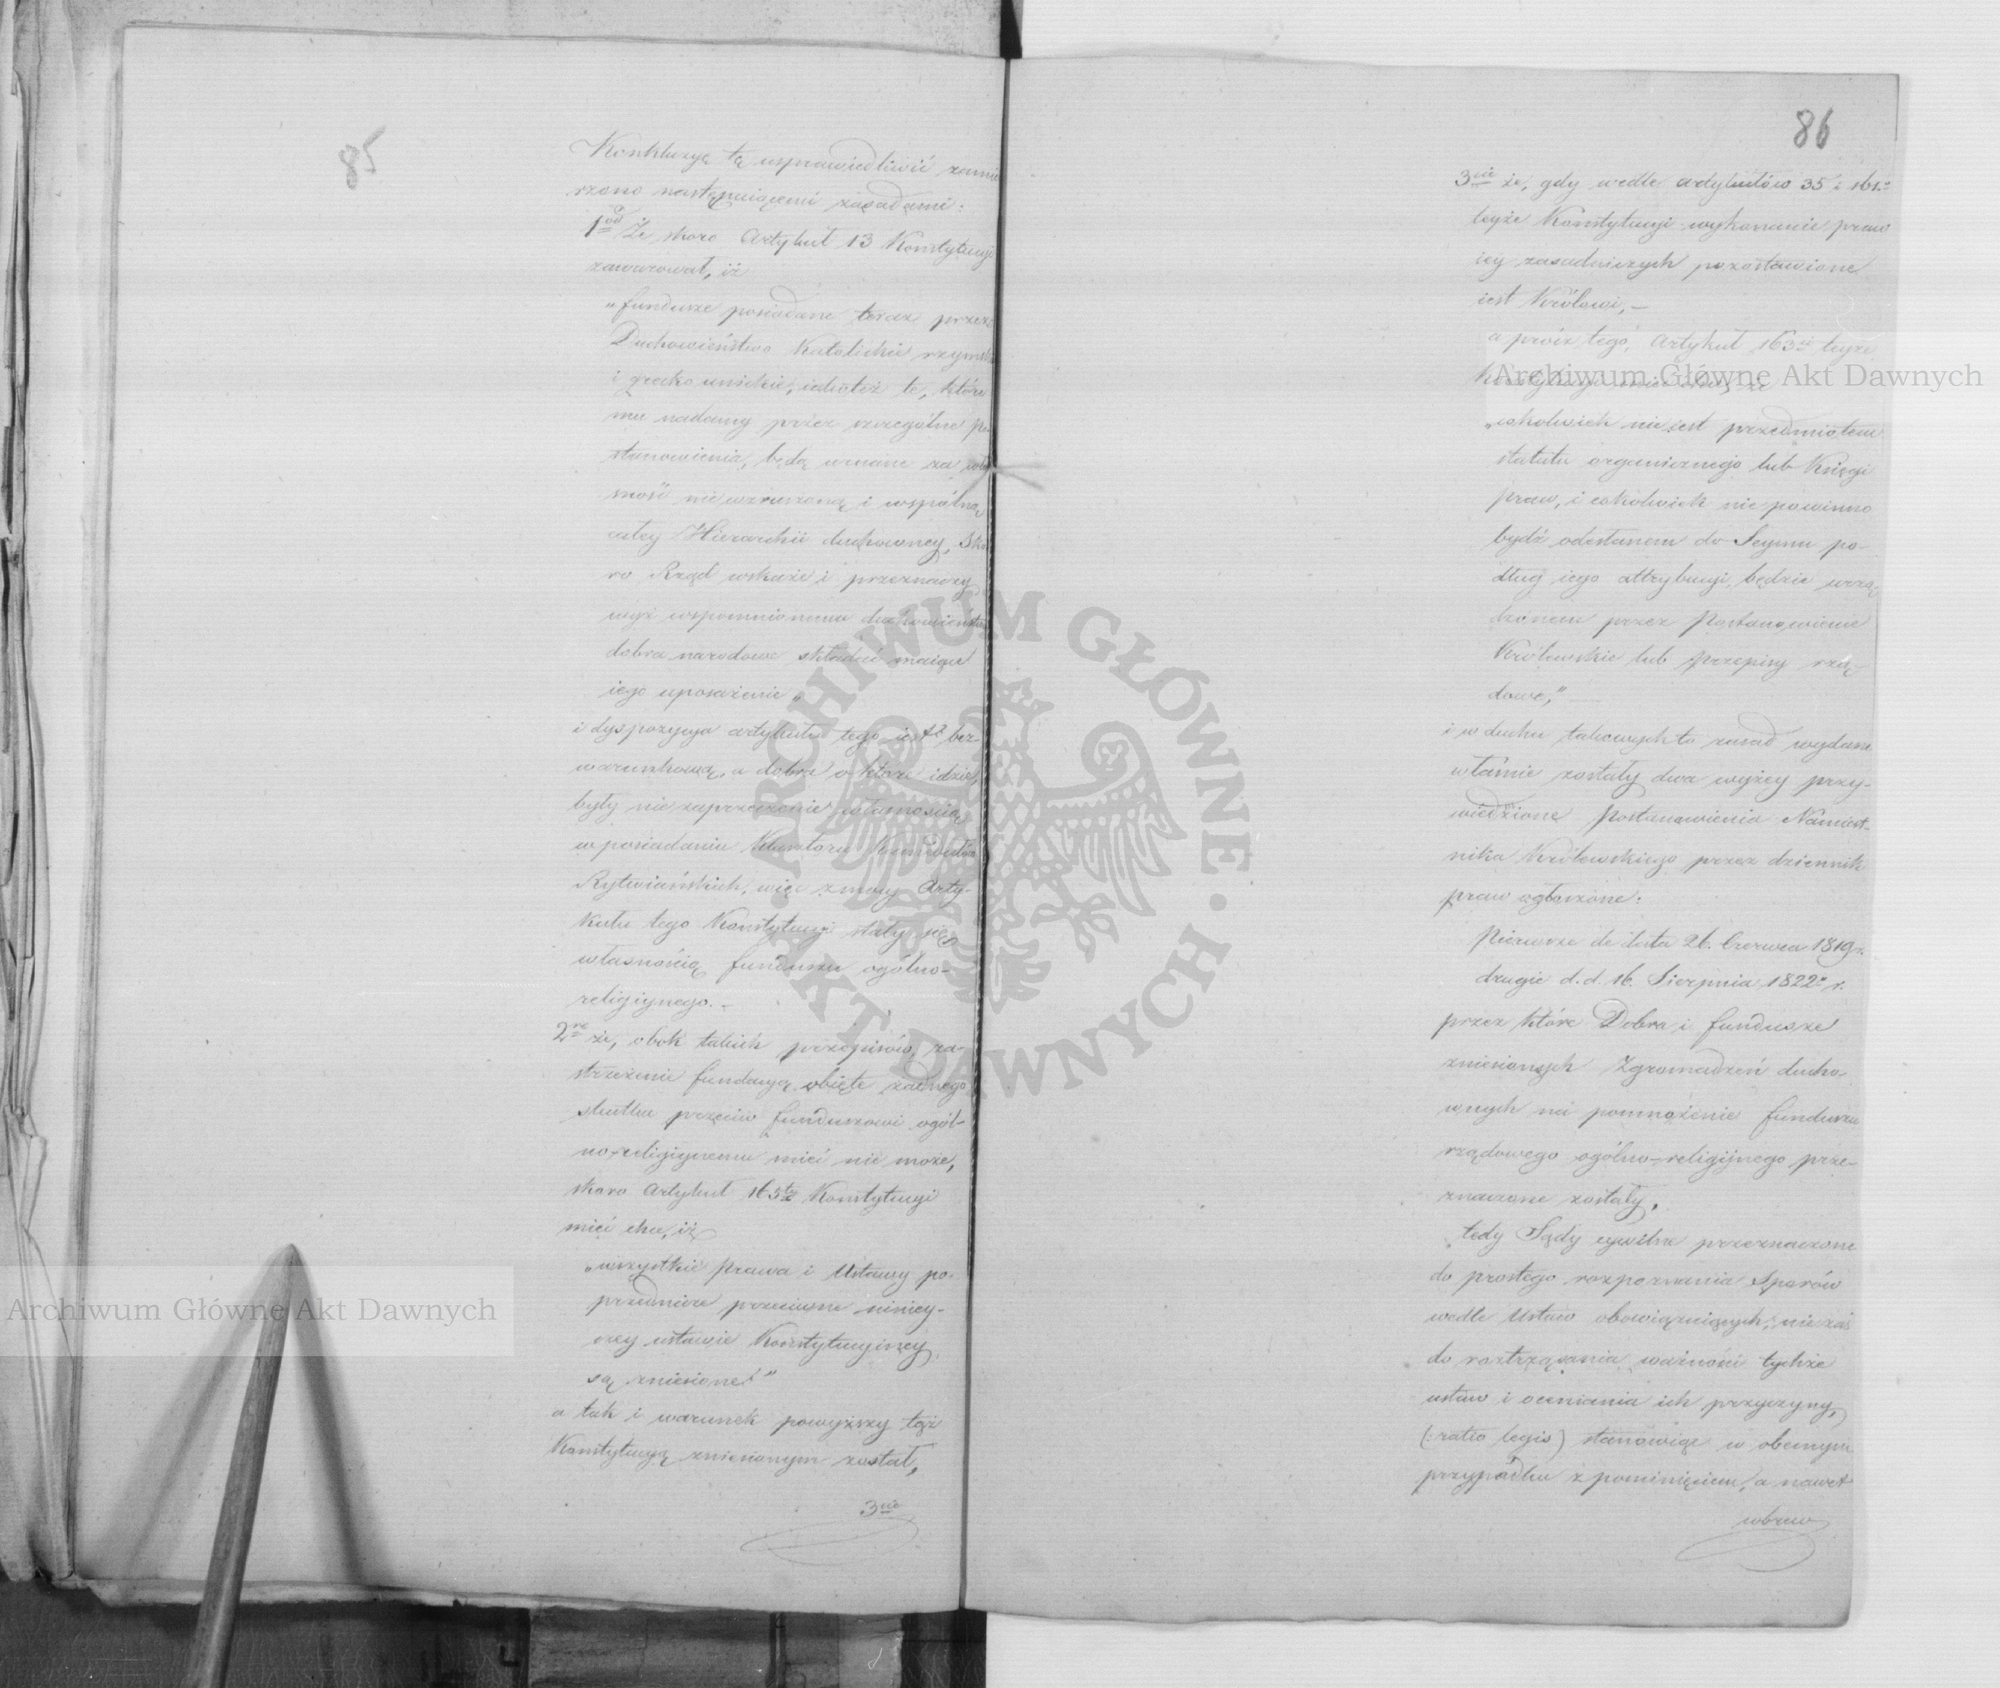 85
Konkluzyą tą usprawiedliwić zamie
rzono następuiącemi zasadami:
1od Że skoro Artykuł 13 Konstytucyi
zawarował, iż
„fundusze posiadane teraz przez
Duchowieństwo Katolickie rzymskie
i grecko unickie, iakoteż te, które
mu nadamy przez szczególne po
stanowienia, będą uznane za włas
ność niewzruszoną i wspólną
całey Hierarchii duchowney, sko
ro Rząd wskaże i przeznaczy
wyż wspomnionemu duchowieństwu
dobra narodowe składać maiące
iego uposażenie„
i dyspozycya artykułu tego iest bez-
warunkową, a dobra o które idzie,
były niezaprzeczenie własnością
w posiadaniu Klasztoru Kamedułów
Rytwiańskich, więc z mocy Arty-
kułu tego Konstytucyi stały się
własnością funduszu ogólno-
religiynego.-
2re że, obok takich przepisów, za-
strzeżenie fundacyą obięte żadnego
skutku przeciw funduszowi ogól-
no-religiynemu mieć nie może,
skoro Artykuł 165ty Konstytucyi
mieć chce, iż
„wszystkie Prawa i Ustawy po-
przednicze przeciwne niniey-
szey ustawie Konstytucyiney
są zniesione"
a tak i warunek powyższy tąż
Konstytucyą zniesionym został,
3cie
86
3cie że, gdy wedle artykułów 35 i 161.
teyże Konstytucyi wykonanie praw
iey zasadniczych pozostawione
iest Królowi,-
a prócz tego, Artykuł 163ci teyże
Konstytucyi
„cokolwiek nie iest przedmiotem
statutu organicznego lub Księgi
praw, i cokolwiek nie powinno
bydź odesłanem do Seymu po-
dług iego attrybucyi, będzie urzą
dzonem przez Postanowienie
Królewskie lub Przepisy rzą-
dowe,"
i w duchu takowych to zasad wydane
właśnie zostały dwa wyżey przy-
wiedzione Postanowienia Namiest-
nika Królewskiego przez dziennik
praw ogłoszone:
Pierwsze de data 26. Czerwca 1819 r.
drugie d.d. 16. Sierpnia 1822 r.
przez które Dobra i fundusze
zniesionych Zgromadzeń ducho
wnych na pomnożenie funduszu
rządowego ogólno-religijnego prze-
znaczone zostały,
tedy Sądy cywilne przeznaczone
do prostego rozpoznania Sporów
wedle Ustaw obowiązuiących, nie zaś
do roztrząsania ważności tychże
ustaw i oceniania ich przyczyny,
(:ratio legis) stanowiąc w obecnym
przypadku z pominięciem, a nawet
wbrew
Archiwum Główne Akt Dawnych
Archiwum Główne Akt Dawnych
ARCHIWUM GŁÓWNE · AKT DAWNYCH ·